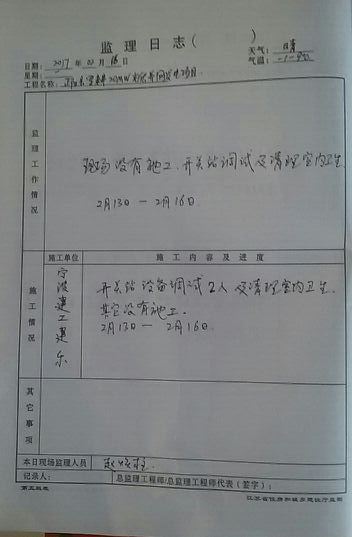 监理日志（ ）
日期：2017年02月16日 天气：晴
星期： 气温：
工程名称： 20MW 并网发电项目
监理工作情况
现场没有施工，开关站调试及清理室内卫生
2月13日 — 2月16日
施工单位 施工内容及进度
施工情况
宁波建工建乐
开关站设备调试2人及清理室内卫生
其它没有施工。
2月13日 — 2月16日
其它事项
本日现场监理人员
记录人： 总监理工程师/总监理工程师代表（签字）：
第五版表 江苏省住房和城乡建设厅监制